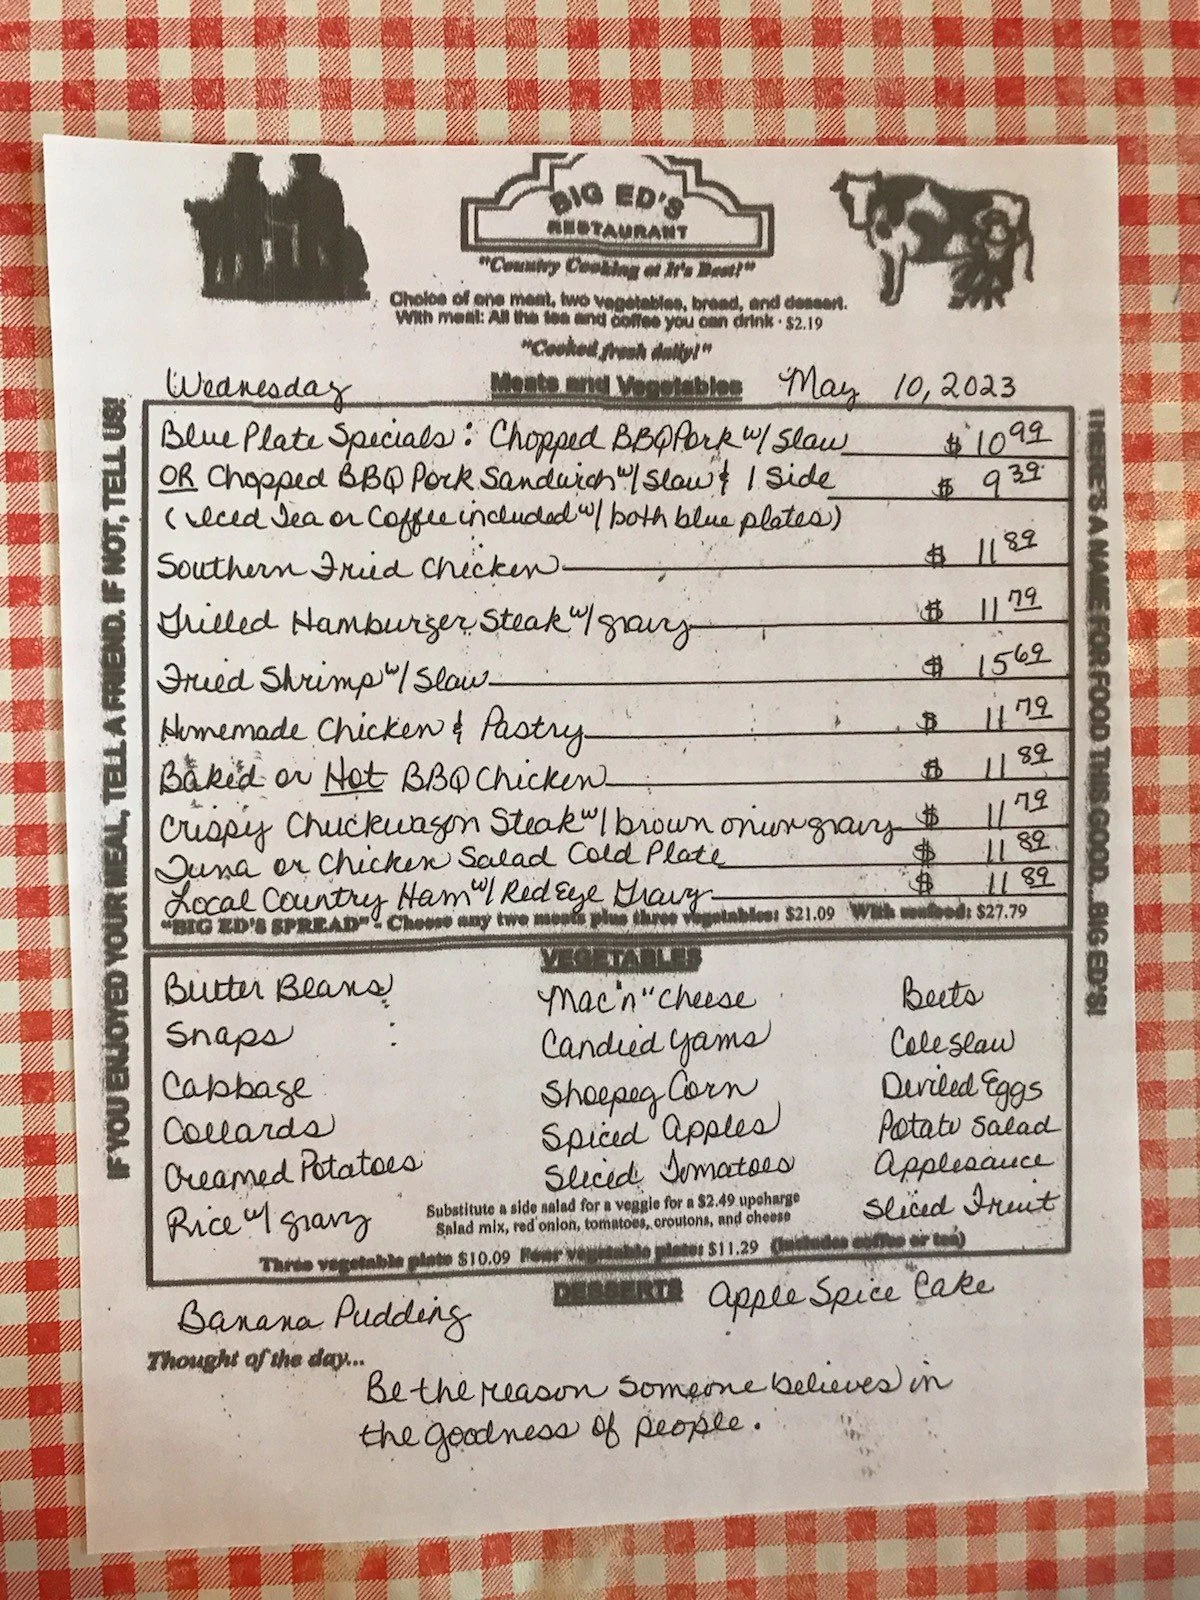 BIG ED'S
RESTAURANT
"Country Cooking at It's Best!"
Choice of one meat, two vegetables, bread, and dessert.
With meal: All the tea and coffee you can drink · $2.19
"Cooked fresh daily!"
Wednesday Meats and Vegetables May 10, 2023
IF YOU ENJOYED YOUR MEAL, TELL A FRIEND. IF NOT, TELL US!
Blue Plate Specials: Chopped BBQ Pork w/ Slaw $10.99
OR Chopped BBQ Pork Sandwich w/ Slaw & 1 Side $ 9.39
(Iced Tea or Coffee included w/ both blue plates)
Southern Fried Chicken $ 11.89
Grilled Hamburger Steak w/ gravy $ 11.79
Fried Shrimp w/ Slaw $ 15.69
Homemade Chicken & Pastry $ 11.79
Baked or Hot BBQ Chicken $ 11.89
Crispy Chuckwagon Steak w/ brown onion gravy $ 11.79
Tuna or Chicken Salad Cold Plate $ 11.89
Local Country Ham w/ Red Eye Gravy $ 11.89
"BIG ED'S SPREAD" - Choose any two meats plus three vegetables: $21.09 With seafood: $27.79
THERE'S A NAME FOR FOOD THIS GOOD...BIG ED'S!
VEGETABLES
Butter Beans Mac "n" Cheese Beets
Snaps Candied Yams Cole Slaw
Cabbage Shoepeg Corn Deviled Eggs
Collards Spiced Apples Potato Salad
Creamed Potatoes Sliced Tomatoes Applesauce
Rice w/ gravy Sliced Fruit
Substitute a side salad for a veggie for a $2.49 upcharge
Salad mix, red onion, tomatoes, croutons, and cheese
Three vegetable plate $10.09 Four vegetable plate: $11.29 (includes coffee or tea)
DESSERTS
Banana Pudding Apple Spice Cake
Thought of the day...
Be the reason someone believes in
the goodness of people.